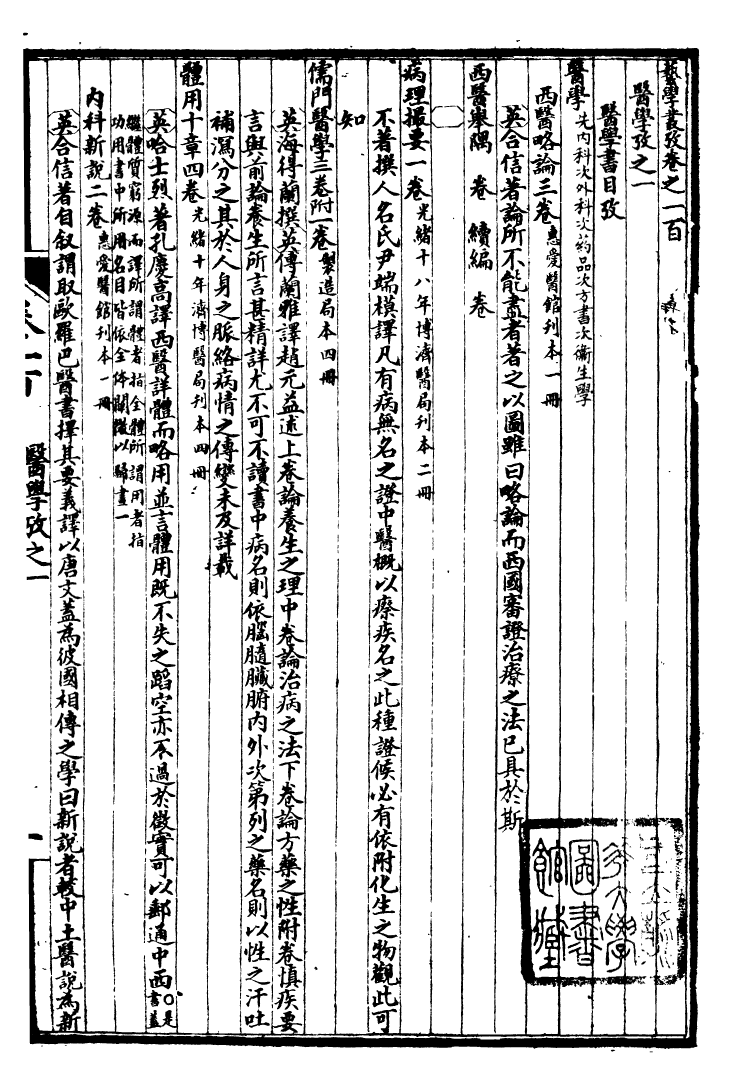 藝學書攷卷之一百
醫學攷之一
醫學書目攷
醫學 先內科次外科次药品次方書次衞生學
西醫略論三卷 惠愛醫館刊本一冊
英合信著論所不能盡者著之以圖雖曰略論而西國審證治療之法已具於斯
西醫舉隅 卷 續編 卷
病理撮要一卷 光緒十八年博濟醫局刊本二冊
不著撰人名氏尹端模譯凡有病無名之證中醫概以瘵疾名之此種證候必有依附化生之物觀此可
知
儒門醫學三卷附一卷 製造局本四冊
英海得蘭撰英傅蘭雅譯趙元益述上卷論養生之理中卷論治病之法下卷論方藥之性附卷慎疾要
言與前論養生所言甚精詳尤不可不讀書中病名則依腦髓臟腑內外次第列之藥名則以性之汗吐
補瀉分之其於人身之脈絡病情之傳變未及詳載
體用十章四卷 光緒十年濟博醫局刊本四冊
英哈士烈著孔慶高譯西醫詳體而略用並言體用既不失之蹈空亦不過於徵實可以郵通中西〇是書蓋
繼體質窮源而譯所謂體者指全體所謂用者指
功用書中所用名目皆依全体闡微以歸畫一
內科新說二卷 惠愛醫館刊本一冊
英合信著自叙謂取歐羅巴醫書擇其要義譯以唐文蓋為彼國相傳之學曰新說者較中土醫說為新
醫學攷之一
一